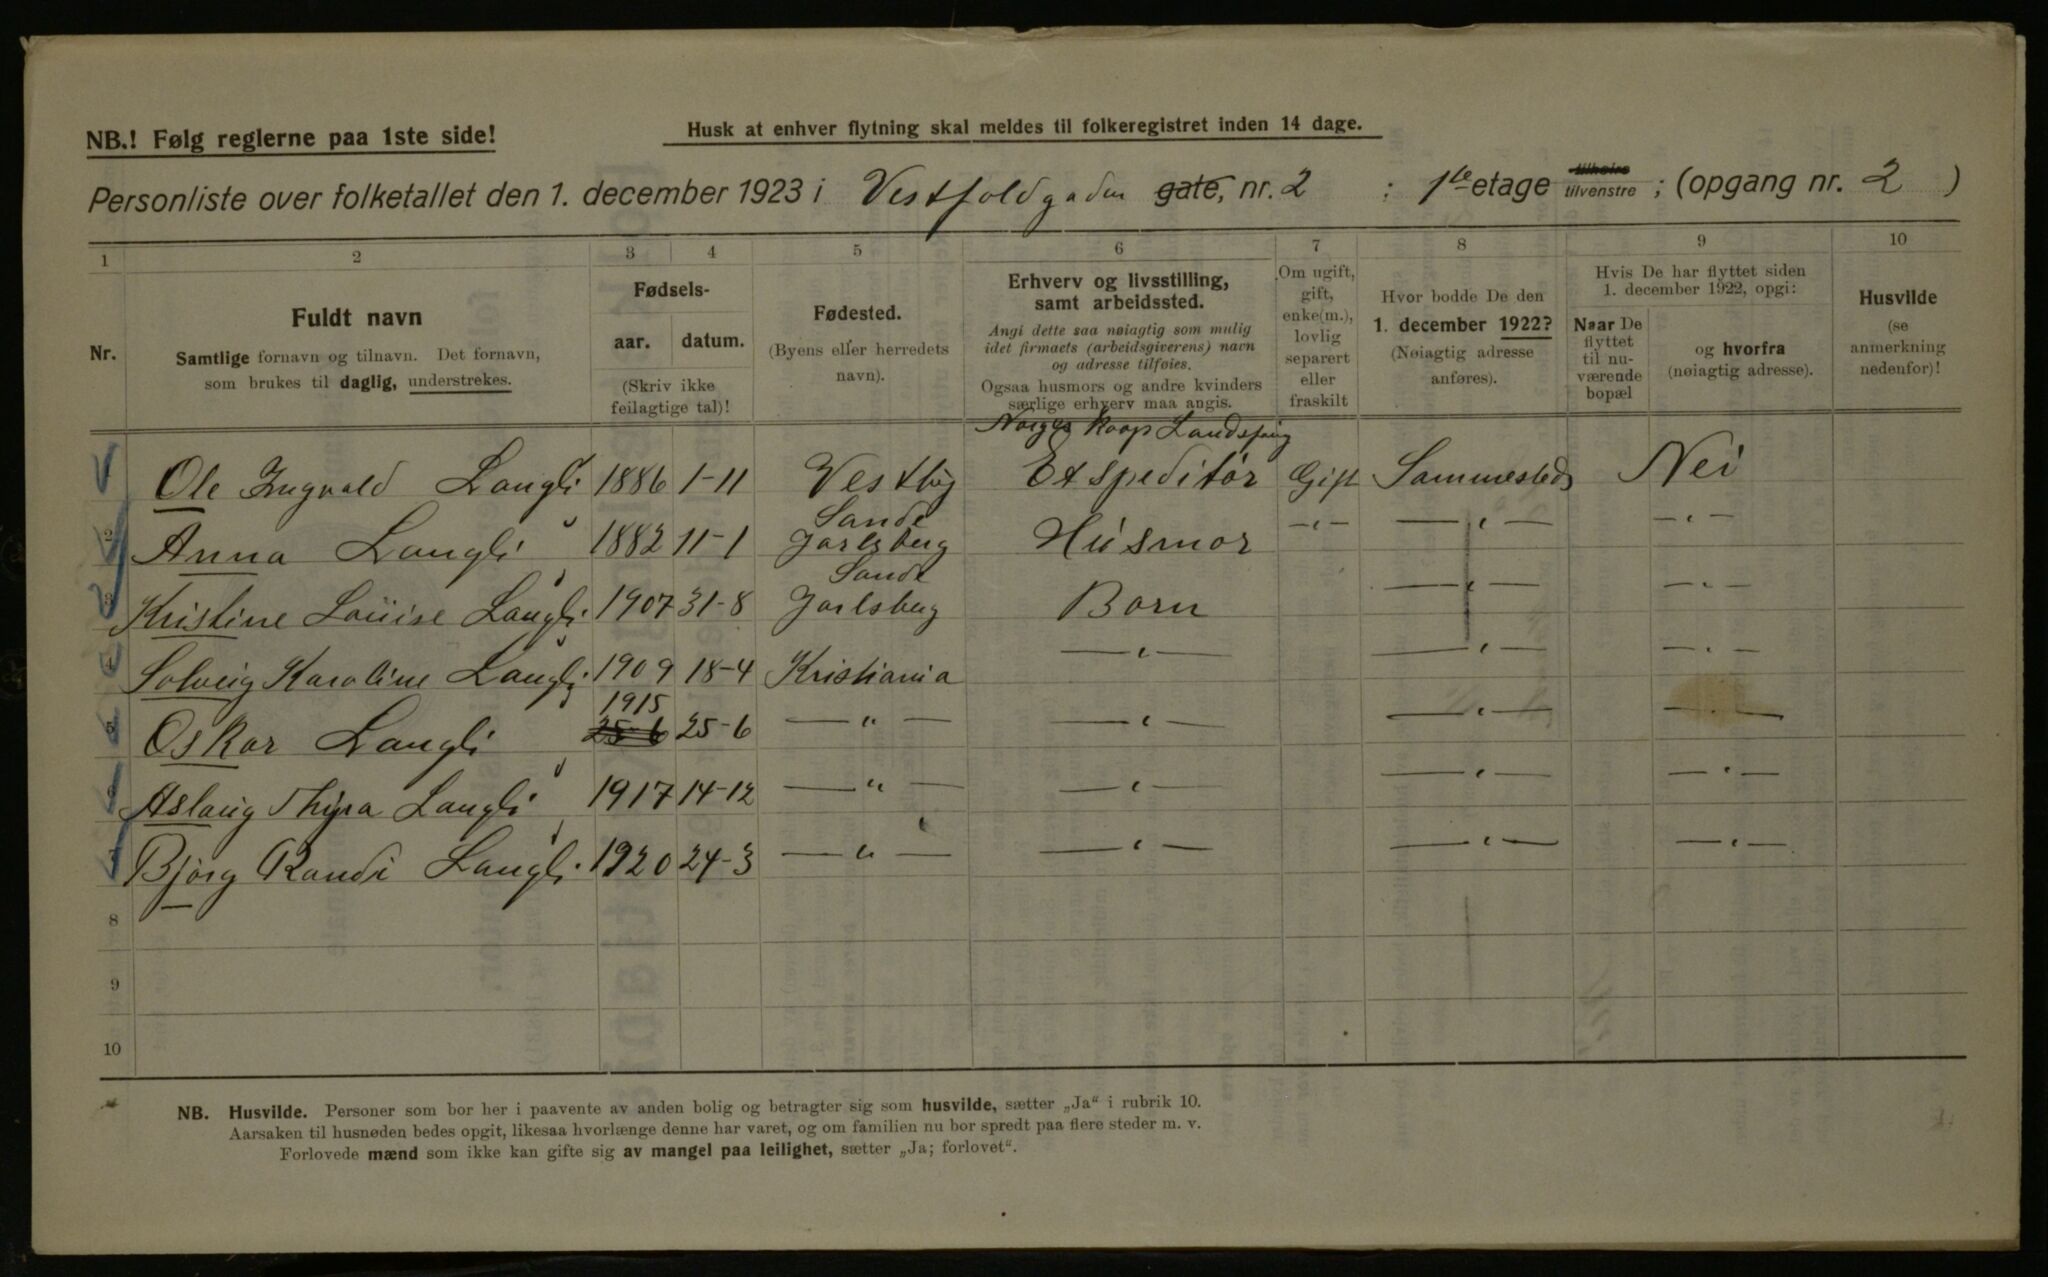 NB.! Følg reglerne paa 1ste side!
Husk at enhver flytning skal meldes til folkeregistret inden 14 dage.
Personliste over folketallet den 1. december 1923 i Vestfoldgaden gate, nr. 2 : 1ste etage tilhøire tilvenstre ; (opgang nr. 2 )
1 2 3 4 5 6 7 8 9 10
Nr.
Fuldt navn
Samtlige fornavn og tilnavn. Det fornavn,
som brukes til daglig, understrekes.
Fødsels-
aar. datum.
(Skriv ikke
feilagtige tal)!
Fødested.
(Byens eller herredets
navn).
Erhverv og livsstilling,
samt arbeidssted.
Angi dette saa nøiagtig som mulig
idet firmaets (arbeidsgiverens) navn
og adresse tilføies.
Ogsaa husmors og andre kvinders
særlige erhverv maa angis.
Om ugift,
gift,
enke(m.),
lovlig
separert
eller
fraskilt
Hvor bodde De den
1. december 1922?
(Nøiagtig adresse
anføres).
Hvis De har flyttet siden
1. december 1922, opgi:
Naar De
flyttet
til nu-
værende
bopæl
og hvorfra
(nøiagtig adresse).
Husvilde
(se
anmerkning
nedenfor)!
Norges Koop Landsfring
1 Ole Ingvald Langli 1886 1-11 Vestby Ekspeditør Gift Sammesteds Nei
Sande
2 Anna Langli 1882 11-1 Jarlsberg Husmor -„- -„- -„-
Sande
3 Kristine Louise Langli 1907 31-8 Jarlsberg Barn -„- -„-
4 Solveig Karoline Langli 1909 18-4 Kristiania -„- -„- -„-
1915
5 Oskar Langli 25-6 25-6 -„- -„- -„- -„-
6 Aslaug Thyra Langli 1917 14-12 -„- -„- -„- -„-
7 Bjørg Randi Langli 1920 24-3 -„- -„- -„- -„-
8
9
10
NB. Husvilde. Personer som bor her i paavente av anden bolig og betragter sig som husvilde, sætter „Ja“ i rubrik 10.
Aarsaken til husnøden bedes opgit, likesaa hvorlænge denne har varet, og om familien nu bor spredt paa flere steder m. v.
Forlovede mænd som ikke kan gifte sig av mangel paa leilighet, sætter „Ja; forlovet“.